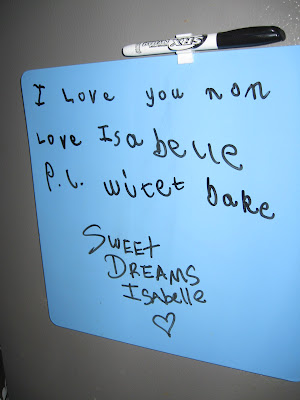 I Love you non
Love Isabelle
P.L. witet bake
Sweet
Dreams
Isabelle